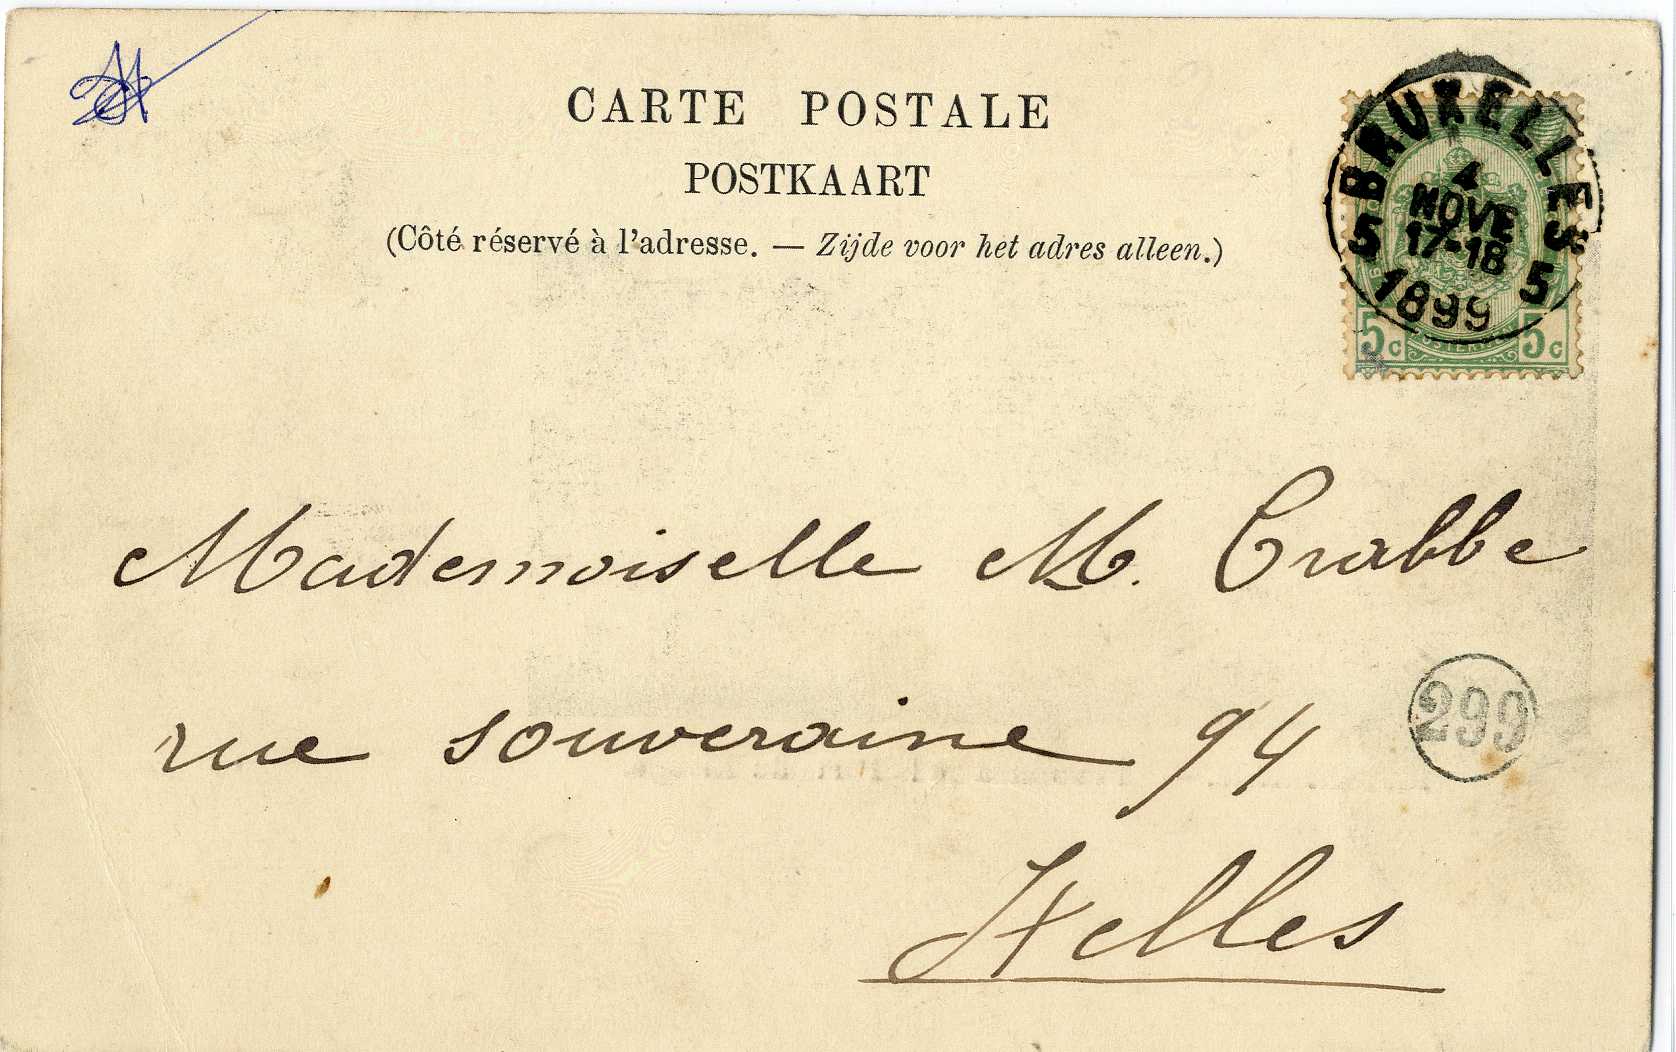 CARTE POSTALE
POSTKAART
(Côté réservé à l'adresse. — Zijde voor het adres alleen.)
BRUXELLES
4
NOVE
17-18
5 5
1899
5c 5c
Mademoiselle M. Crabbe
rue souveraine 94
299
Ixelles